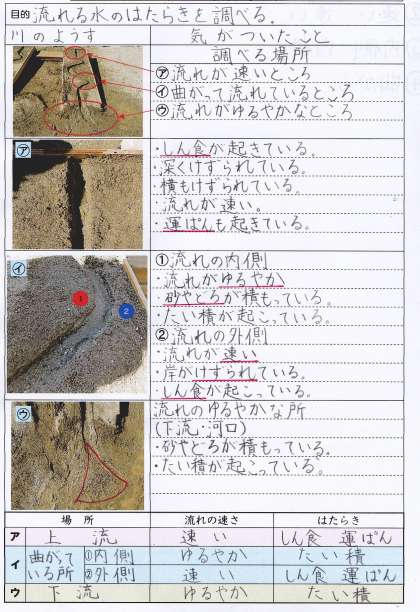 目的 流れる水のはたらきを調べる。
川のようす 気がついたこと
調べる場所
㋐流れが速いところ
㋑曲がって流れているところ
㋒流れがゆるやかなところ
㋐
・しん食が起きている。
・深くけずられている。
・横もけずられている。
・流れが速い。
・運ぱんも起きている。
㋑
①流れの内側
・流れがゆるやか
・砂やどろが積もっている。
・たい積が起こっている。
②流れの外側
・流れが速い
・岸がけずられている。
・しん食が起こっている。
1
2
㋒
流れのゆるやかな所
(下流・河口)
・砂やどろが積もっている。
・たい積が起こっている。
場所 流れの速さ はたらき
ア 上流 速い しん食 運ぱん
イ 曲がっている所 ①内側 ゆるやか たい積
②外側 速い しん食 運ぱん
ウ 下流 ゆるやか たい積